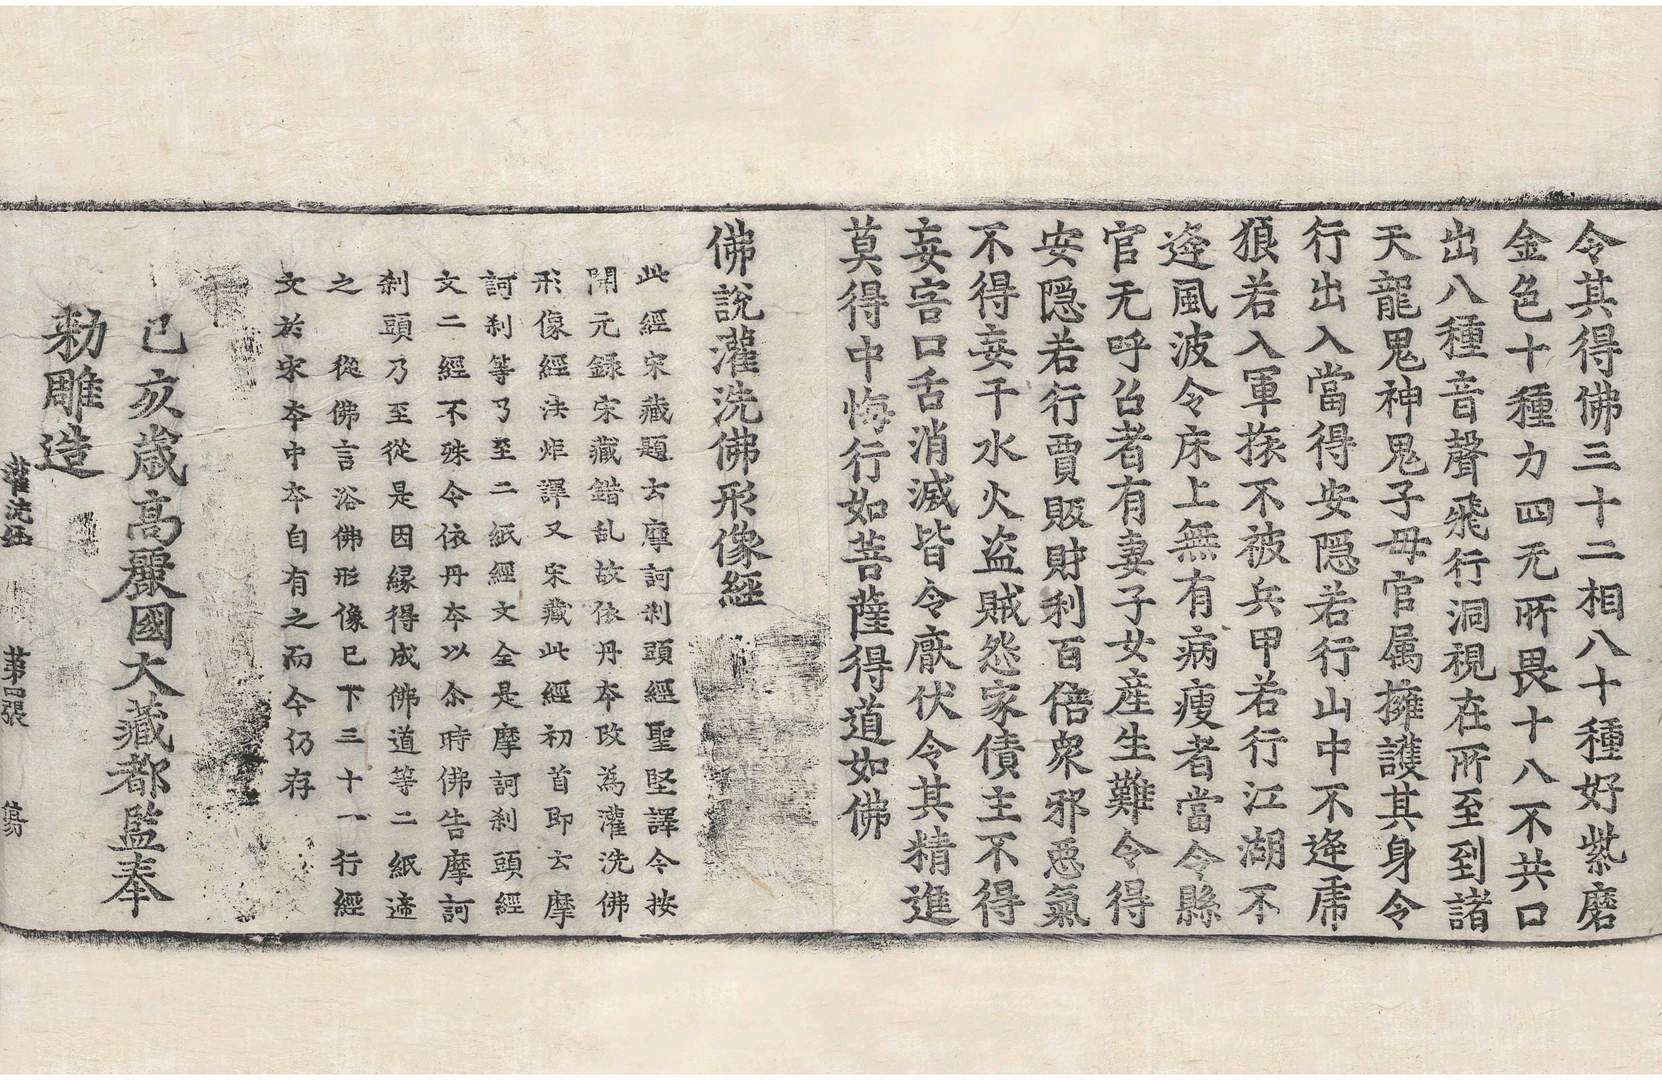 令其得佛三十二相八十種好紫磨
金色十種力四无所畏十八不共口
出八種音聲飛行洞視在所至到諸
天龍鬼神鬼子母官属擁護其身令
行出入當得安隱若行山中不逢虎
狼若入軍㧱不被兵甲若行江湖不
逢風波令床上無有病瘦者當令縣
官无呼召者有妻子女産生難令得
安隱若行賈販財利百倍衆邪惡氣
不得妄干水火盗賊怨家債主不得
妄害口舌消滅皆令厭伏令其精進
莫得中悔行如菩薩得道如佛
佛說灌洗佛形像經
此經宋藏題云摩訶刹頭經聖堅譯今按
開元録宋藏錯乱故依丹夲改為灌洗佛
形像經法炬譯又宋藏此經初首即云摩
訶刹等乃至二紙經文全是摩訶刹頭經
文二經不殊今依丹夲以尒時佛告摩訶
刹頭乃至從是因縁得成佛道等二紙遆
之從佛言浴佛形像已下三十一行經
文於宋夲中夲自有之而今仍存
己亥歳高麗國大藏都監奉
勑雕造
灌洗經 第四張 傷